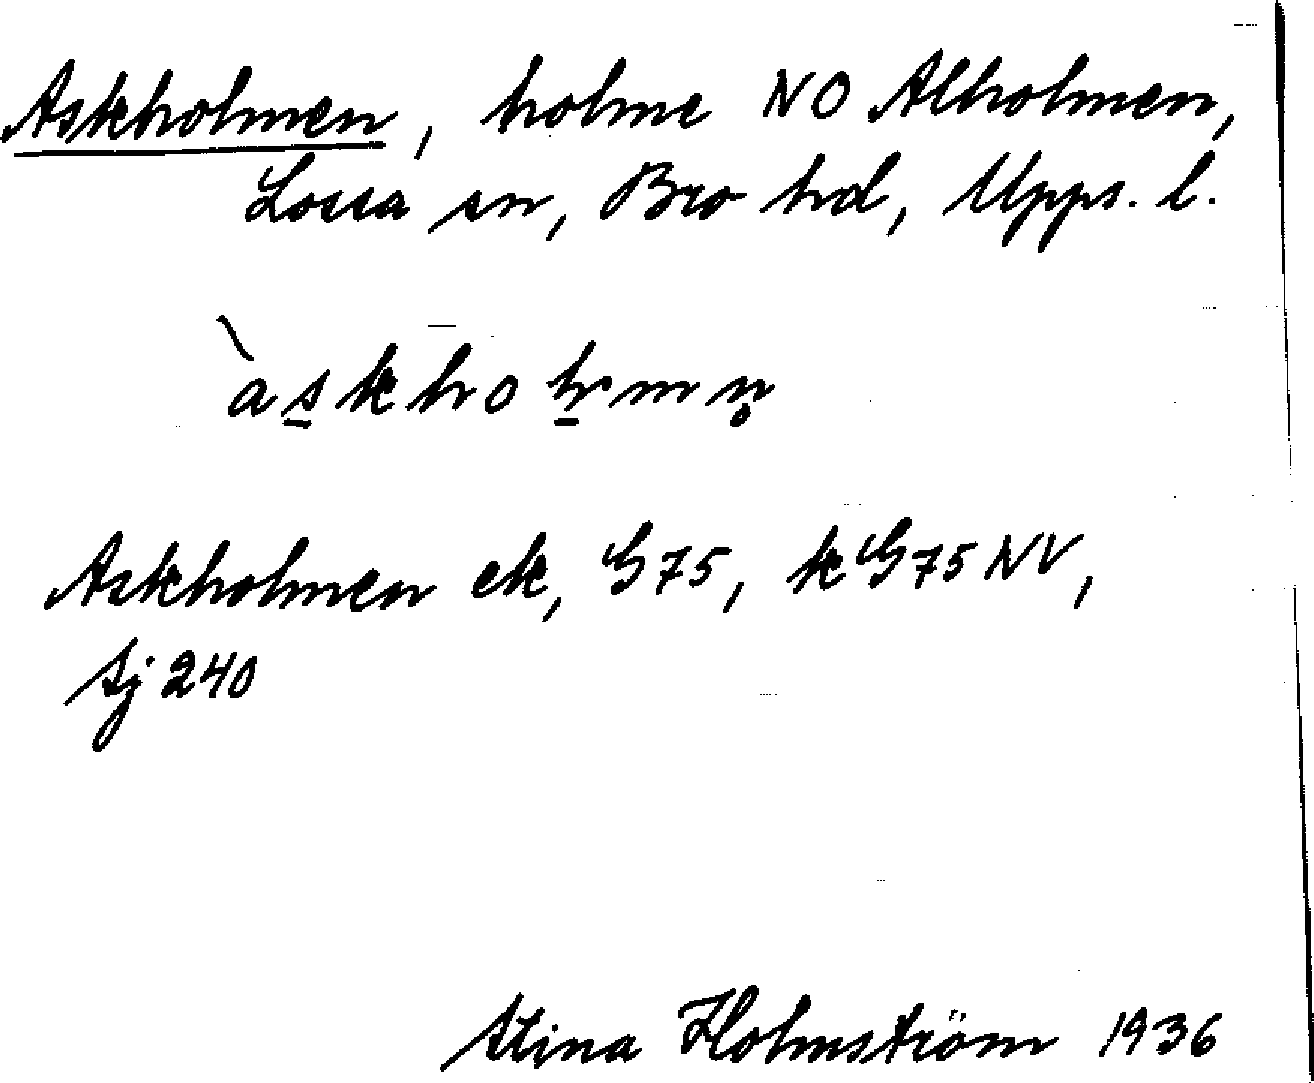 Askholmen, holme NO Alholmen,
Lossa sn, Bro hd, Upps. l.
àskholmn̥
Askholmen ek, G75, k G75 NV,
Sj 240
Stina Holmström 1936